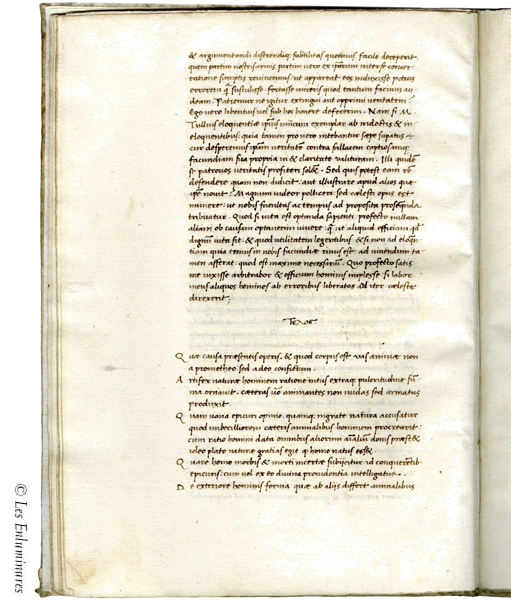 & argumentandi disserendiq; subtilitas quenuis facile deceperit
quem partim nostris armis partim vero ex ipsorum inter se concer
tatione sumptis revincemus: ut appareat eos induxisse potius
errorem q̃ sustulisse. fortasse mireris quod tantum facinus au
deam. Patiemur ne igitur extingui aut opprimi veritatem:
Ego vero libentius vel sub hoc honere defecerim. Nam si M.
Tullius eloquentiæ ipsius unicum exemplar ab indoctis & in
eloquentibus: quia tamen pro vero nitebantur sæpe supatus ẽ
cur desperemus ipsam veritatẽ contra fallacem captiosamq;
facundiam sua propria vi & claritate valituram. Illi quidẽ
se patronos veritatis profiteri solẽt. Sed quis potest eam rẽ
defendere quam non didicit: aut illustrare apud alios quæ
ipse novit? Magnum videor polliceri: sed cælesti opus est
munere: ut nobis facultas ac tempus ad proposita
tribuatur. Quod si vita est optanda sapienti: profecto nullam
aliam ob causam optaverim vivere: q̃ ut aliquid efficiam qđ
dignũ vita sit: & quod utilitatem legentibus & si non ad eloq̃n
tiam quia tenuis in nobis facundiæ rivus est: ad vivendum ta
men afferat. quod est maxime necessariũ. Quo profecto satis
me vixisse arbitrabor & officium hominis implesse: si labor
meus aliquos homines ab erroribus liberatos ad iter cæleste
direxerit;
Τελος.
Quæ causa præsentis operis. & quod corpus est vas animæ non
a prometheo sed a deo confictum.
Artifex naturæ hominem ratione intus extraq; pulcritudine sũ
ma ornavit. cæteras vō animantes non nudas sed armatas
produxit.
Quam vana epicuri opinio. quamq; migrate natura accusatur
quod imbecilliorem cæteris animalibus hominem procrearit:
cum ratio homini data omnibus aliorum aĩaliũ donis præst&
ideo plato naturæ gratias egit q homo natus ess&.
Quare homo morbis & morti incertæ subijcitur id conquerẽtib.
epicuris: cum vel ex eo divina providentia intelligatur.
De exteriore hominis forma quæ ab aliis differt animalibus
© Les Enluminures